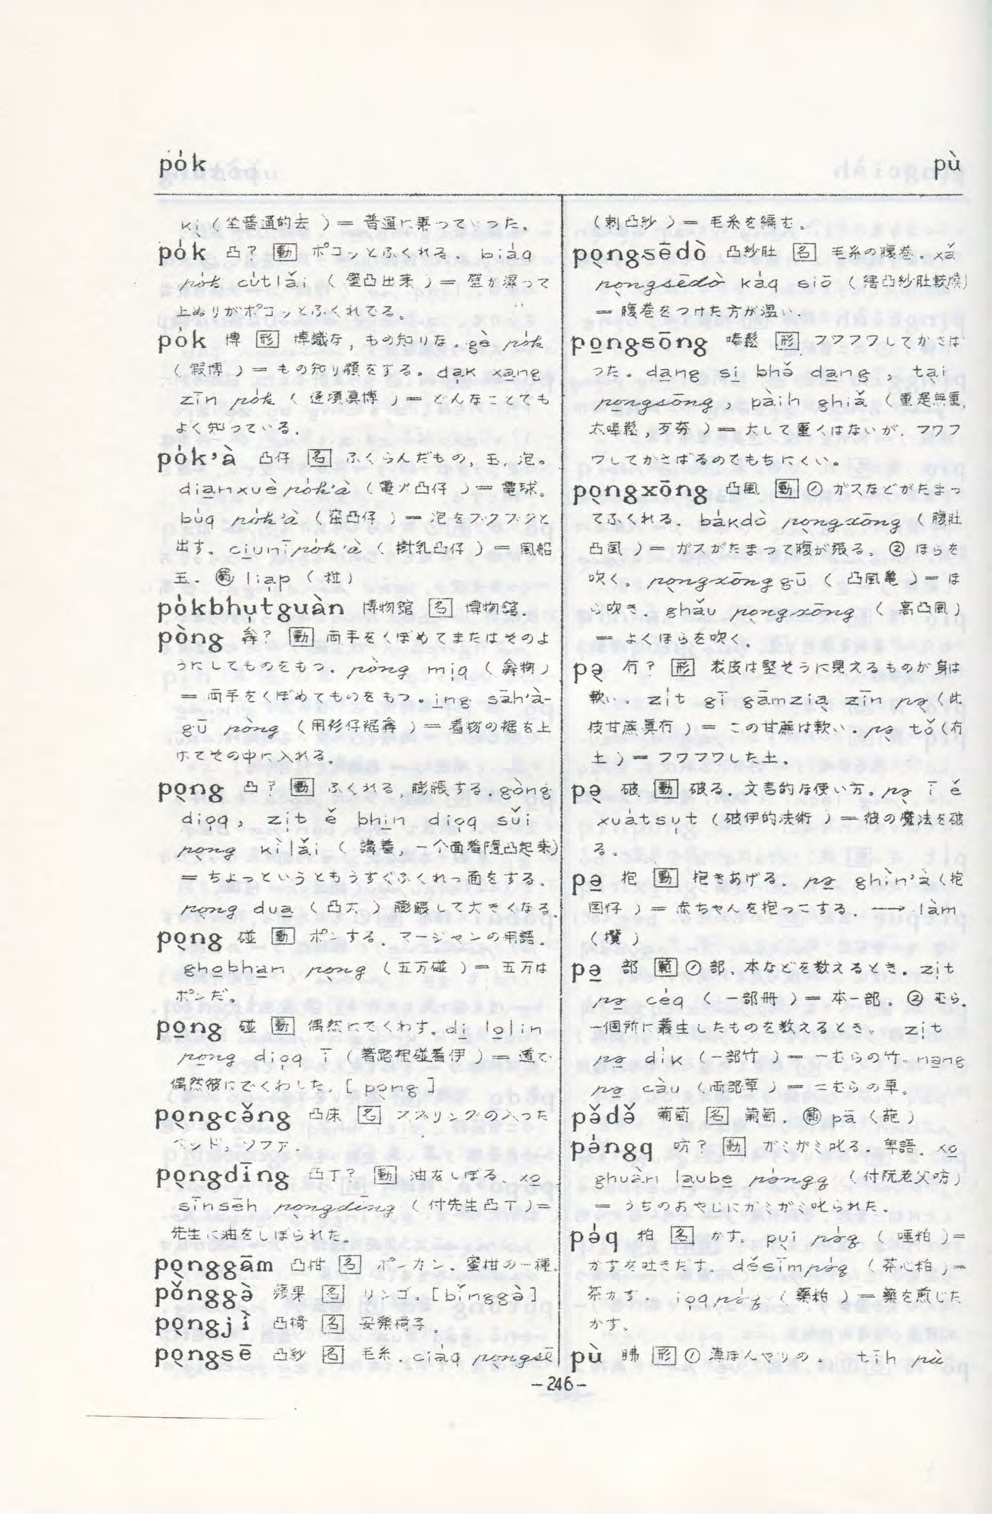 pȯk
pù
ki̖ (坐普通的去) = 普通に乗っていった。
pȯk 凸? 動 ポコッとふくれる. biȧq
pȯk cu̍tlǎi (壁凸出来) = 壁が湿って
上ぬりがポコッとふくれてる。
pȯk 博 形 博識な, もの知りな. gè pȯk
(假博) = もの知り顔をする。da̱k xa̱ng
zīn pȯk (逐項真博) = どんなことでも
よく知っている.
pȯk'à 凸仔 名 ふくらんだもの, 玉, 泡。
dia̱nxuè pȯk'à (電火凸仔) = 電球。
bu̍q pȯk'à (窋凸仔) = 泡をブクブクと
出す. ciu̱nī pȯk'à (樹乳凸仔) = 風船
玉. 圏 lia̱p (粒)
pȯkbhu̱tguàn 博物館 名 博物館.
pòng 弇? 動 両手をくぼめてまたはそのよ
うにしてものをもつ. pòng mi̱q (弇物)
= 両手をくぼめてものをもつ. i̱ng sāh'à-
gū pòng (用衫仔裾弇) = 着物の裾を上
げてその中に入れる.
po̖ng 凸? 動 ふくれる, 膨脹する. gòng
dio̱q, zi̱t ě bhi̱n dio̱q sǔi
po̖ng ki̖lǎi (講着, 一个面着隨凸起来)
= ちょっというともうすぐふくれっ面をする.
po̖ng dua̱ (凸大) 膨脹して大きくなる.
po̖ng 碰 動 ポンする. マージャンの用語.
gho̱bha̱n po̖ng (五万碰) = 五万は
ポンだ。
po̱ng 碰 動 偶然にでくわす. di̱ lo̱lin
po̱ng dio̱q ī (著路裡碰着伊) = 道で
偶然彼にでくわした. [po̖ng]
po̖ngcǎng 凸床 名 スプリングの入った
ベッド, ソファ.
po̖ngdīng 凸丁? 動 油をしぼる. xo̱
sīnsēh po̖ngdīng (付先生凸丁) =
先生に油をしぼられた。
po̖nggām 凸柑 名 ポンカン. 蜜柑の一種.
pǒnggə̀ 蘋果 名 リンゴ. [bǐnggə̀]
po̖ngjì 凸椅 名 安楽椅子.
po̖ngsē 凸紗 名 毛糸. ciȧq po̖ngsē
(刺凸紗) = 毛糸を編む.
po̖ngsēdò 凸紗肚 名 毛糸の腹巻. xǎ
po̖ngsēdò kȧq siō (縖凸紗肚較燒)
= 腹巻をつけた方が温い.
po̱ngsōng 嗙鬆 形 フワフワしてかさば
った. da̱ng si̱ bhə̌ da̱ng, ta̖i
po̱ngsōng, pàih ghiǎ (重是無重,
太嗙鬆, 歹夯) = 大して重くはないが, フワフ
ワしてかさばるのでもちにくい。
po̖ngxōng 凸風 動 ① ガスなどがたまっ
てふくれる. bȧkdò po̖ngxōng (腹肚
凸風) = ガスがたまって腹が張る. ② ほらを
吹く. po̖ngxōnggū (凸風亀) = ほ
ら吹き. ghǎu po̖ngxōng (高凸風)
= よくほらを吹く.
pə̖ 冇? 形 表皮は堅そうに見えるものが身は
軟い. zi̱t gī gāmzia̖ zīn pə̖ (此
枝甘蔗真冇) = この甘蔗は軟い. pə̖ tǒ (冇
土) = フワフワした土.
pə̖ 破 動 破る. 文言的な使い方. pə̖ ī ě
xuȧtsu̱t (破伊的法術) = 彼の魔法を破
る.
pə̱ 抱 動 抱きあげる. pə̱ ghìn'à (抱
囝仔) = 赤ちゃんを抱っこする. ⟶ làm
(攬)
pə̱ 部 範 ① 部, 本などを数えるとき. zi̱t
pə̱ cėq (一部冊) = 本一部. ② むら.
一個所に叢生したものを数えるとき. zi̱t
pə̱ di̍k (一部竹) = 一むらの竹. na̱ng
pə̱ càu (両部草) = 二むらの草。
pə̌də̌ 葡萄 名 葡萄. 圏 pā (葩)
pə̇ngq 嗙? 動 がミがミ叱る. 卑語. xo̱
ghuàn la̱ube̱ pə̇ngq (付阮老父嗙)
= うちのおやじにがミがミ叱られた.
pə̇q 粕 名 かす. pu̖i pə̇q (唾粕) =
かすを吐きだす. děsīm pə̇q (茶心粕) =
茶かす. io̱q pə̇q (藥粕) = 薬を煎じた
かす.
pù 昢 形 ① 薄ぼんやりの. tīh pù
-246-